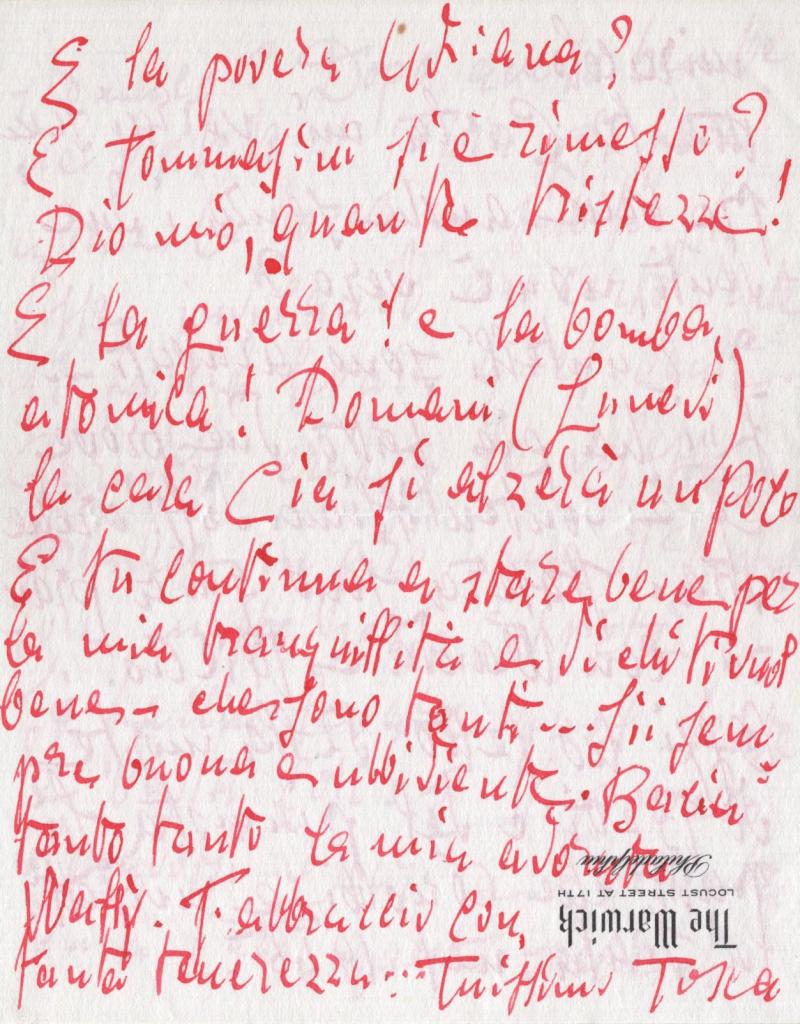 E la povera Adriana?
E Tommasini si è rimesso?
Dio mio, quante tristezze!
E la guerra! e la bomba
atomica! Domani (Lunedì)
la cara Cia si alzerà un poco
E tu continua a stare bene per
la mia tranquillità e di chi ti vuol
bene – che sono tanti... Sii sem
pre buona e ubbidiente. Bacia
tanto tanto la mia adorata
Wally. T'abbraccio con
tanta tenerezza... Tuissima Tosca
The Warwick
LOCUST STREET AT 17TH
Philadelphia